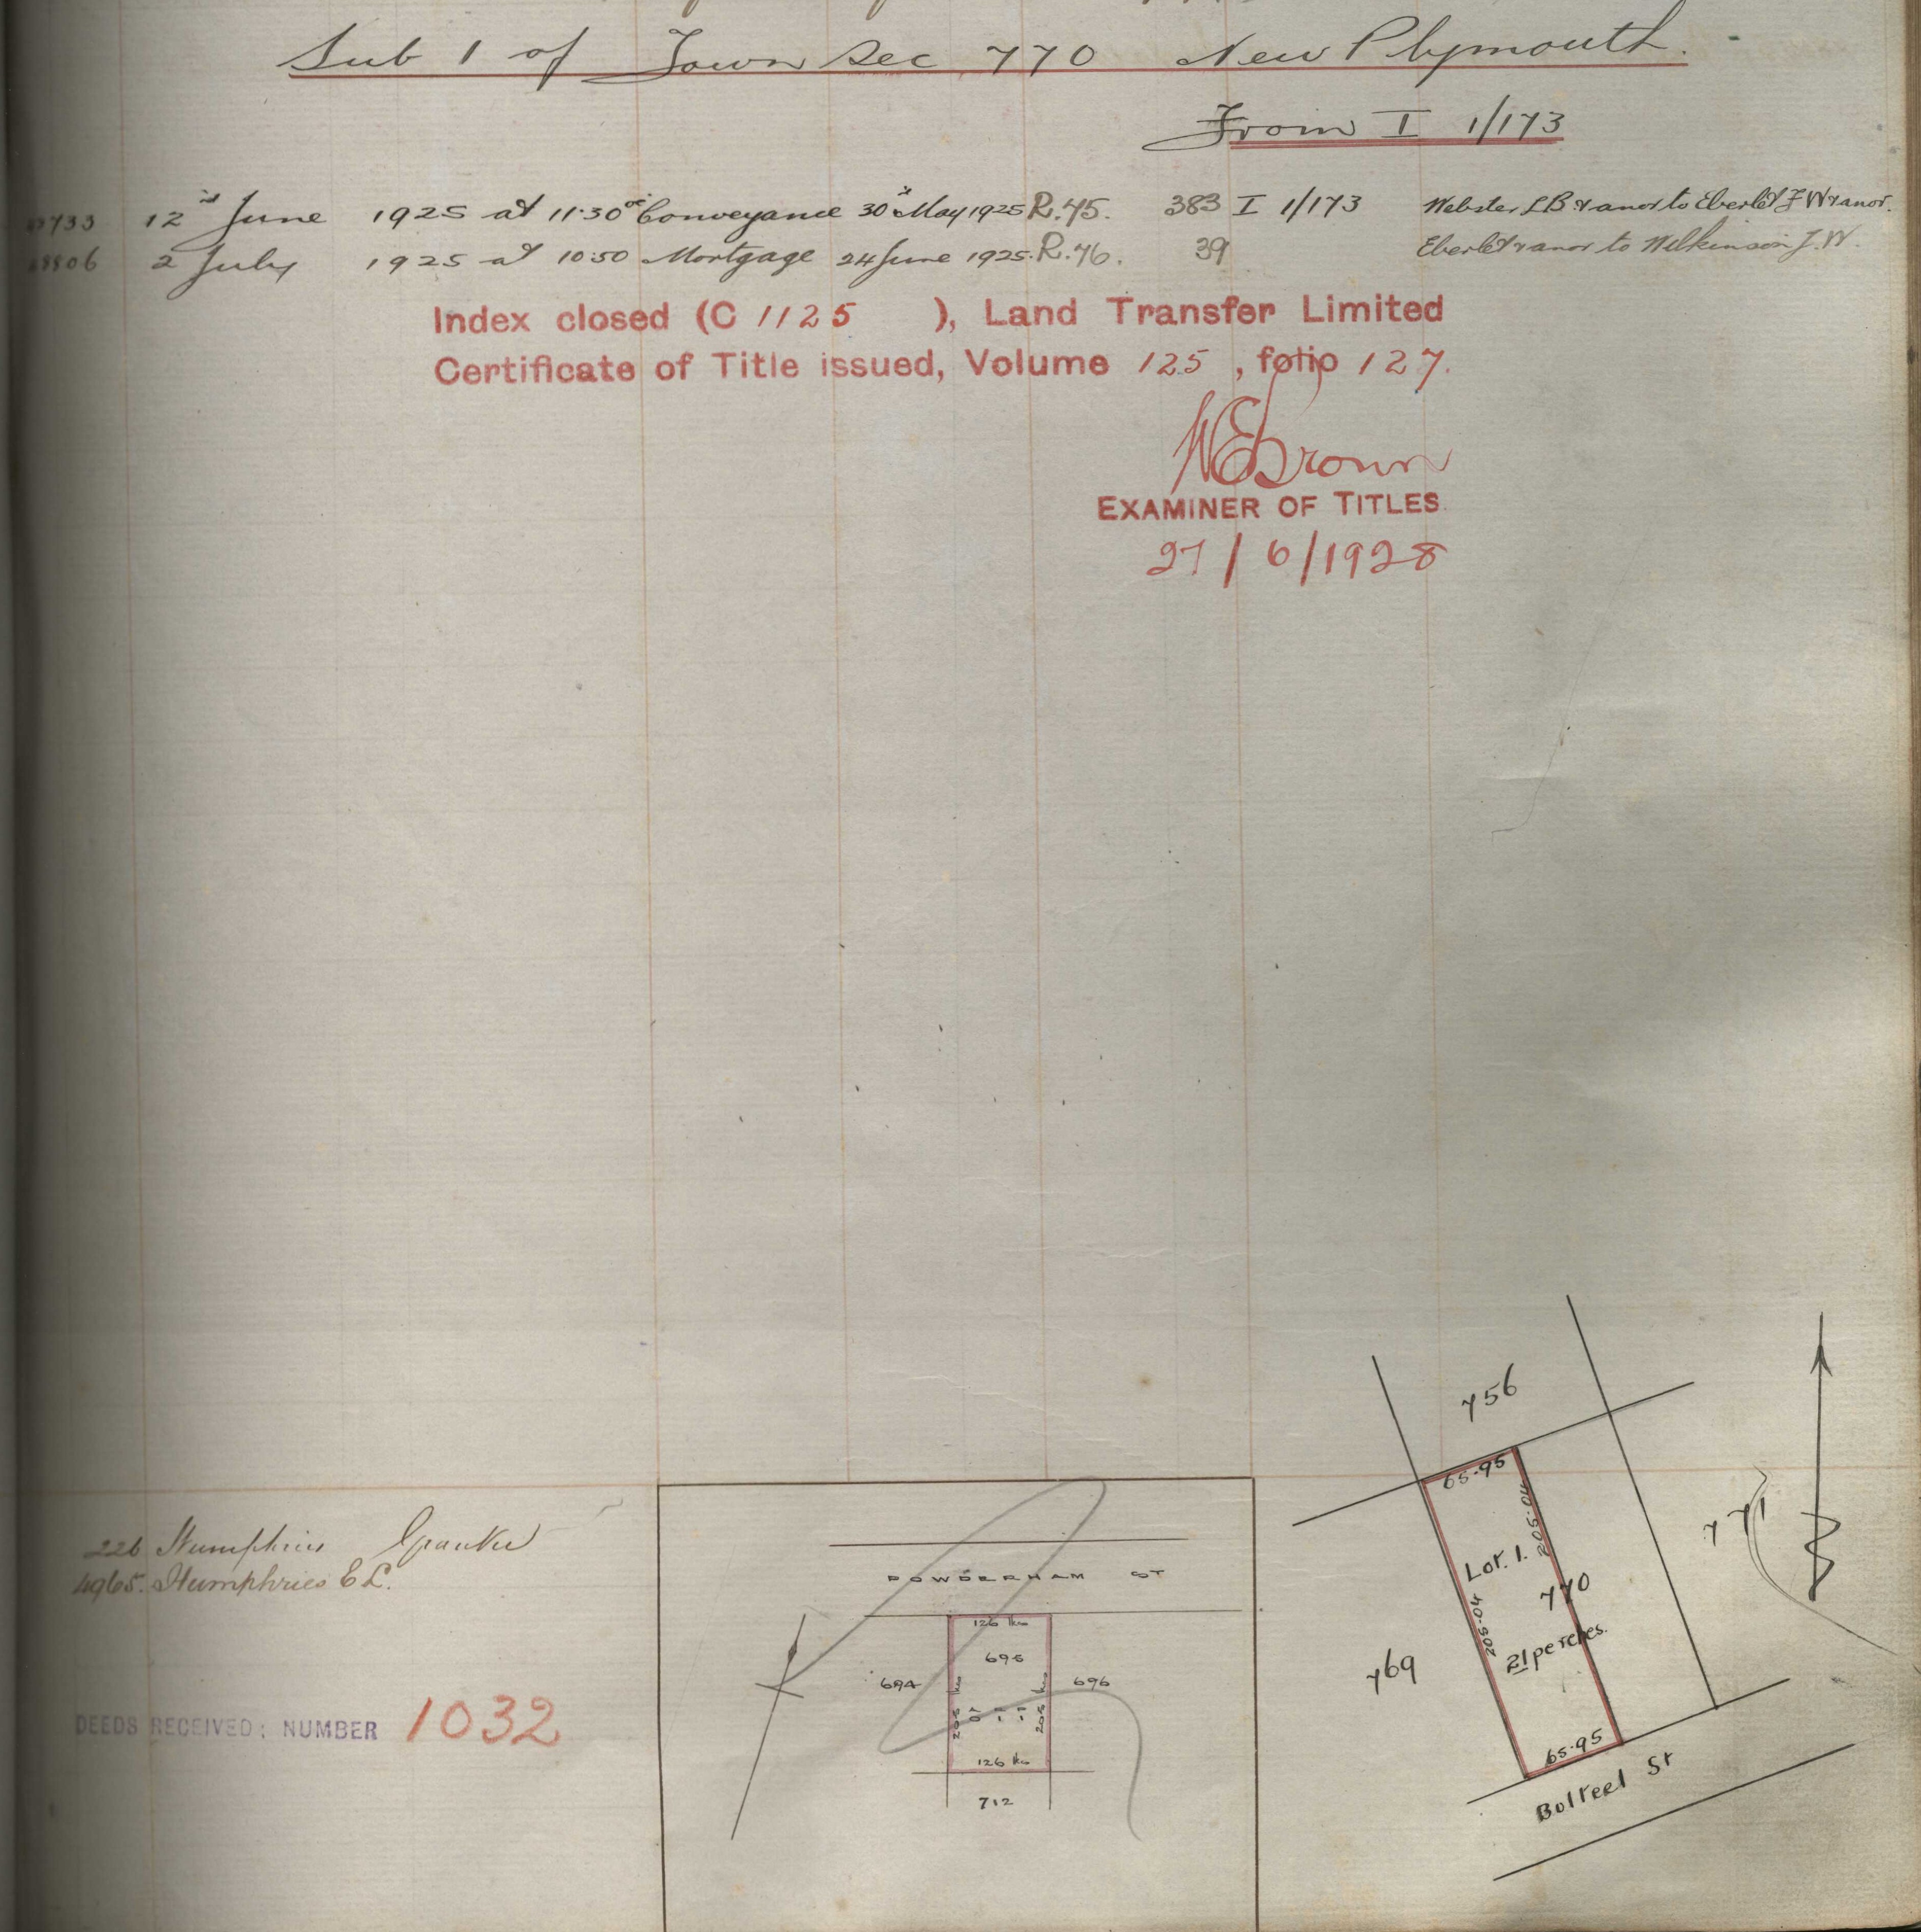 Sub 1 of Town Sec 770 New Plymouth.
From I 1/173
733 12 June 1925 at 11.30 Conveyance 30 May 1925 R.45. 383 I 1/173 Webster L B & anor to Eberlet F W & anor.
806 2 July 1925 at 10.50 Mortgage 24 June 1925. R.46. 39 Eberlet & anor to Wilkinson J. W.
Index closed (C 1125 ), Land Transfer Limited
Certificate of Title issued, Volume 125, folio 127.
W E Brown
EXAMINER OF TITLES
27/6/1928
226 Humphries
4965. Humphries E L.
DEEDS RECEIVED: NUMBER 1032
POWDERHAM ST
126 lks
695
694
696
205 lks
0 : 1 : 1
205 lks
126 lks
712
756
65.95
205.04
Lot. 1.
770
771
205.04
21 perches.
769
65.95
Botteel St